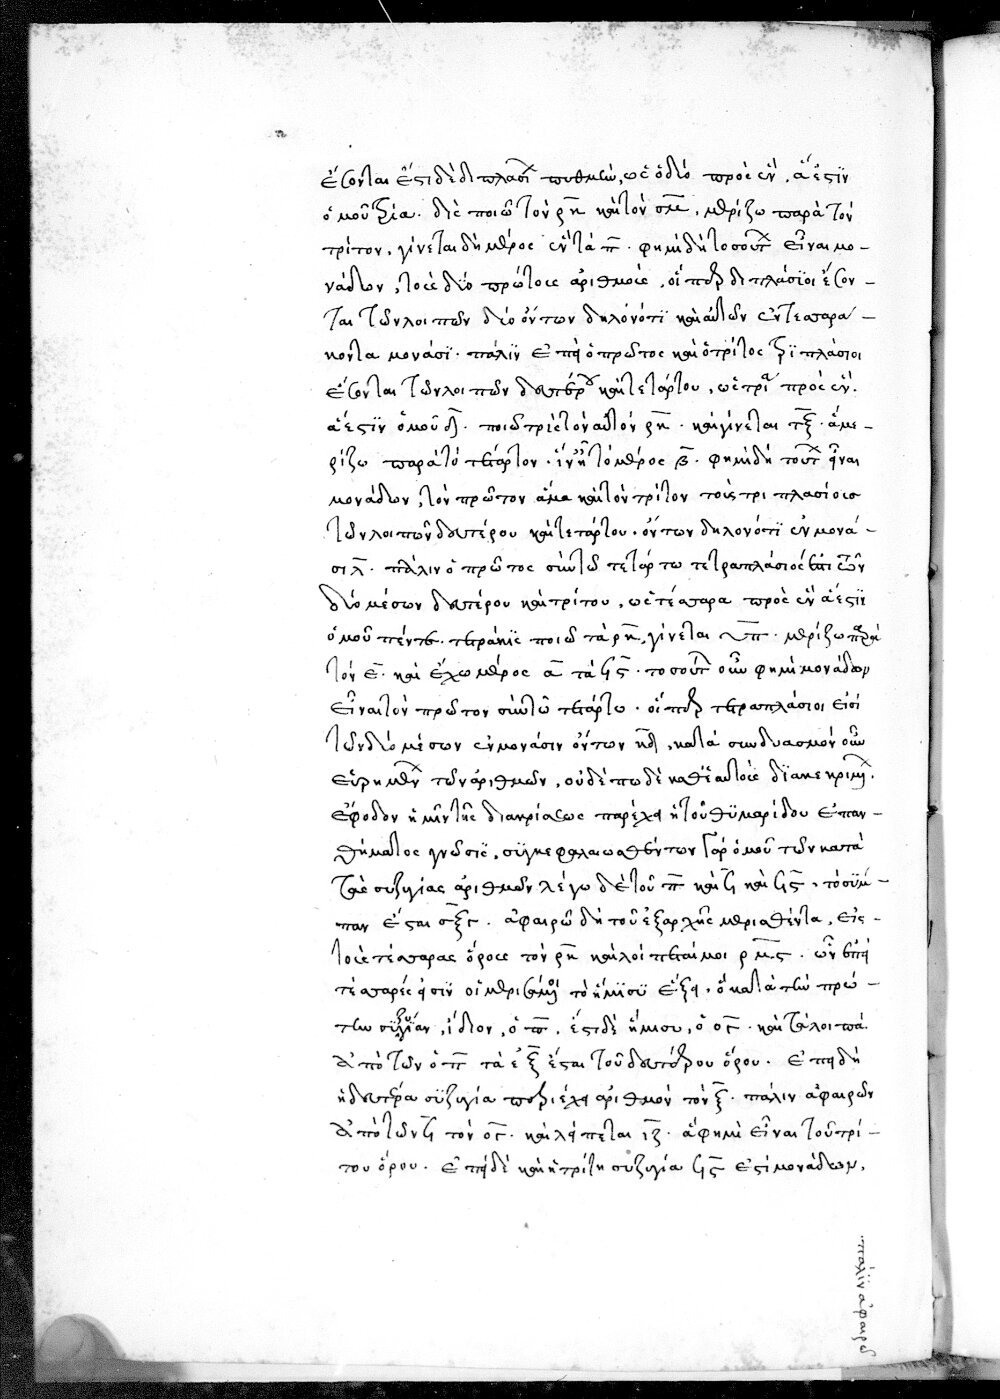 ἔσονται ἔστι δὲ διπλασί πυθμὼν, ὡς ὁ δύο πρὸς ἓν. ἅ ἐστϊν
ὁμοῦ τρία. δὶς ποιῶ τὸν ρκ καὶ τὸν σμ, μερίζω παρὰ τὸν
τρίτον, γίνεται δὴ μέρος ἓν τὰ π. φημὶ δὴ τοσούτ εἶναι μο-
νάδων, τοὺς δύο πρώτους ἀριθμοὺς, οἵπερ διπλάσϊοι ἔσον-
ται τῶν λοιπῶν δύο ὄντων δηλονότϊ καὶ αὐτῶν ἐν τεσσαρά-
κοντα μονάσϊ. πάλϊν ἐπεὶ ὁ πρῶτος καὶ ὁ τρίτος τρϊπλάσιοι
ἔσονται τῶν λοιπῶν δευτέρου καὶ τετάρτου, ὡς τρία πρὸς ἓν.
ἅ ἐστϊν ὁμοῦ δ. ποιῶ τρὶς τὸν αὐτὸν ρκ. καὶ γίνεται τξ. ἃ με-
ρίζω παρὰ τὸ τέταρτον. ἵν ᾖ τὸ μέρος ϟ. φημὶ δὴ τούτ εἶναι
μονάδων, τὸν πρῶτον ἅμα καὶ τὸν τρίτον τοὺς τριπλασίους
τῶν λοιπῶν δευτέρου καὶ τετάρτου. ὄντων δηλονότϊ ἐν μονά-
σι λ. πάλιν ὁ πρῶτος σὺν τῶ τετάρτω τετραπλάσιός ἐστι τῶν
δύο μέσων δευτέρου καὶ τρίτου, ὡς τέσσαρα πρὸς ἓν ἅ ἐστϊ
ὁμοῦ πέντε. τετράκϊς ποιῶ τὰ ρκ, γίνεται υπ. μερίζω παρὰ
τὸν ε. καὶ ἔχω μέρος α τὰ ϟϛ. τοσούτ οὖν φημὶ μονάδων
εἶναι τὸν πρῶτον σὺν τῶ τετάρτω. οἵπερ τετραπλάσιοι εἰσὶ
τῶν δύο μέσων ἐν μονάσιν ὄντων κδ, κατὰ συνδυασμὸν οὖν
εὑρημέν τῶν ἀριθμῶν, οὐδέπω δὲ καθ ἑαυτοὺς δϊακεκριμέν.
ἔφοδον ἡμῖν τῆς διακρίσεως παρέχει ἡ τοῦ θϋμαρίδου ἐπαν-
θήματος γνῶσις, συγκεφαλαιωθέντων γὰρ ὁμοῦ τῶν κατὰ
τὰς συζυγίας ἀριθμῶν λέγω δὲ τοῦ π καὶ ϟ καὶ ϟϛ, τὸ σύμ-
παν ἔσται σξϛ. ἀφαιρῶ δὴ τοῦ ἐξαρχῆς μερισθέντα, εἰς
τοὺς τέσσαρας ὅρους τὸν ρκ καὶ λοίπεταί μοι ρμϛ. ὧν ἐπεὶ
τέσσαρές εἰσϊν οἱ μερισμοὶ τὸ ἥμϊσϋ ἕξει. ὁ κατὰ τὴν πρώ-
την συζυγίαν, ἴδιον, ὁ π. ἔστι δὲ ἥμισυ, ὁ ογ. καὶ τὰ λοιπὰ
ἀπὸ τῶν ὁ π τὰ ἑ ζ ἔσται τοῦ δευτέρου ὅρου. ἐπειδὴ
ἡ δευτέρα σϋζυγία περιέχει ἀριθμὸν τὸν ϟ. πάλιν ἀφαιρῶν
ἀπὸ τῶν ϟ τὸν ογ. καὶ λείπεται ιζ. ἅ φημὶ εἶναι τοῦ τρί-
του ὅρου. ἐπεὶ δὲ καὶ ἡ τρίτη συζυγία ϟϛ ἐστὶ μονάδων,
πάλϊν ἀφαιρῶ